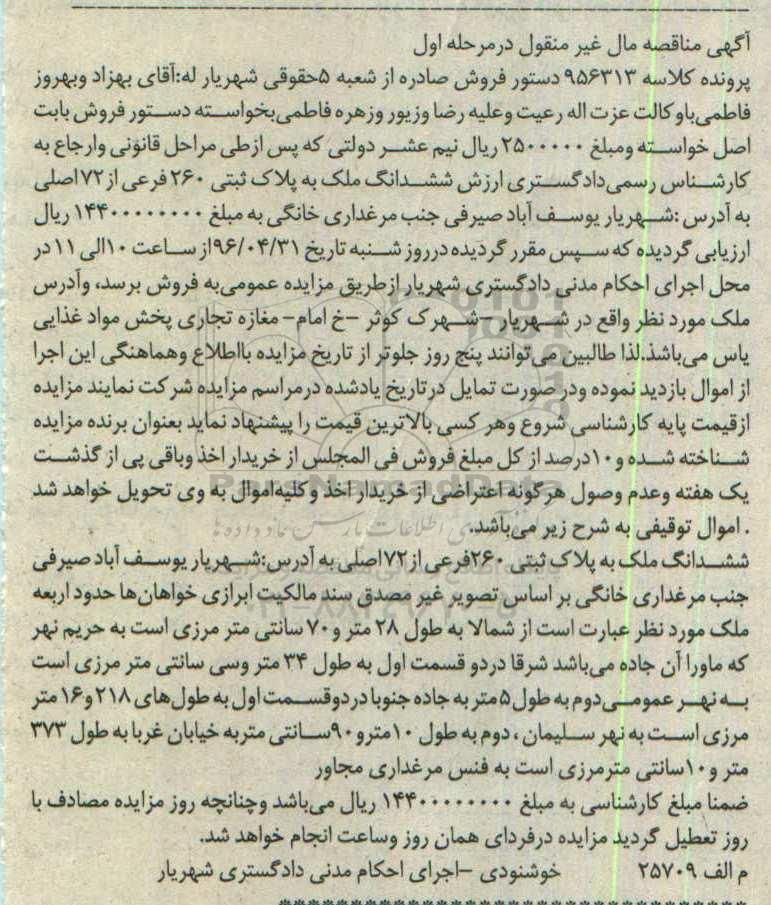 آگهی مناقصه مال غیر منقول درمرحله اول
پرونده کلاسه ۹۵۶۳۱۳ دستور فروش صادره از شعبه ۵حقوقی شهریار له:آقای بهزاد وبهروز
فاطمی‌باوکالت عزت اله رعیت وعلیه رضا وزیور وزهره فاطمی‌بخواسته دستور فروش بابت
اصل خواسته ومبلغ ۲۵۰۰۰۰۰ ریال نیم عشر دولتی که پس ازطی مراحل قانونی وارجاع به
کارشناس رسمی‌دادگستری ارزش ششدانگ ملک به پلاک ثبتی ۲۶۰ فرعی از ۷۲اصلی
به آدرس :شهریار یوسف آباد صیرفی جنب مرغداری خانگی به مبلغ ۱۴۴۰۰۰۰۰۰۰۰ ریال
ارزیابی گردیده که سپس مقرر گردیده درروز شنبه تاریخ ۹۶/۰۴/۳۱از ساعت ۱۰الی ۱۱ در
محل اجرای احکام مدنی دادگستری شهریار ازطریق مزایده عمومی‌به فروش برسد، وآدرس
ملک مورد نظر واقع در شهریار –شهرک کوثر –خ امام– مغازه تجاری پخش مواد غذایی
یاس می‌باشد.لذا طالبین می‌توانند پنج روز جلوتر از تاریخ مزایده بااطلاع وهماهنگی این اجرا
از اموال بازدید نموده ودر صورت تمایل درتاریخ یادشده درمراسم مزایده شرکت نمایند مزایده
ازقیمت پایه کارشناسی شروع وهر کسی بالاترین قیمت را پیشنهاد نماید بعنوان برنده مزایده
شناخته شده و۱۰درصد از کل مبلغ فروش فی المجلس از خریدار اخذ وباقی پی از گذشت
یک هفته وعدم وصول هرگونه اعتراضی از خریدار اخذ وکلیه‌اموال به وی تحویل خواهد شد
. اموال توقیفی به شرح زیر می‌باشد.
ششدانگ ملک به پلاک ثبتی ۲۶۰فرعی از۷۲اصلی به آدرس:شهریار یوسف آباد صیرفی
جنب مرغداری خانگی بر اساس تصویر غیر مصدق سند مالکیت ابرازی خواهان‌ها حدود اربعه
ملک مورد نظر عبارت است از شمالا به طول ۲۸ متر و۷۰ سانتی متر مرزی است به حریم نهر
که ماورا آن جاده می‌باشد شرقا دردو قسمت اول به طول ۳۴ متر وسی سانتی متر مرزی است
به نهر عمومی‌دوم به طول ۵متر به جاده جنوبا در دوقسمت اول به طول‌های ۲۱۸ و۱۶ متر
مرزی است به نهر سلیمان ، دوم به طول ۱۰مترو۹۰سانتی متربه خیابان غربا به طول ۳۷۳
متر و۱۰سانتی مترمرزی است به فنس مرغداری مجاور
ضمنا مبلغ کارشناسی به مبلغ ۱۴۴۰۰۰۰۰۰۰۰ ریال می‌باشد وچنانچه روز مزایده مصادف با
روز تعطیل گردید مزایده درفردای همان روز وساعت انجام خواهد شد.
م الف ۲۵۷۰۹ خوشنودی –اجرای احکام مدنی دادگستری شهریار
ParsNamadData